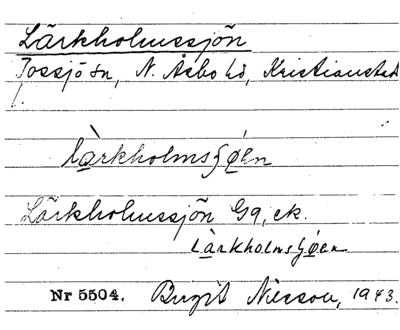 Lärkholmssjön
Tossjö sn, N. Åsbo hd, Kristianstad
l.
làrkholmsʃǿen
Lärkholmssjön Gq, ek.
làrkholmsʃǿen
Nr 5504. Birgit Nilsson, 1943.